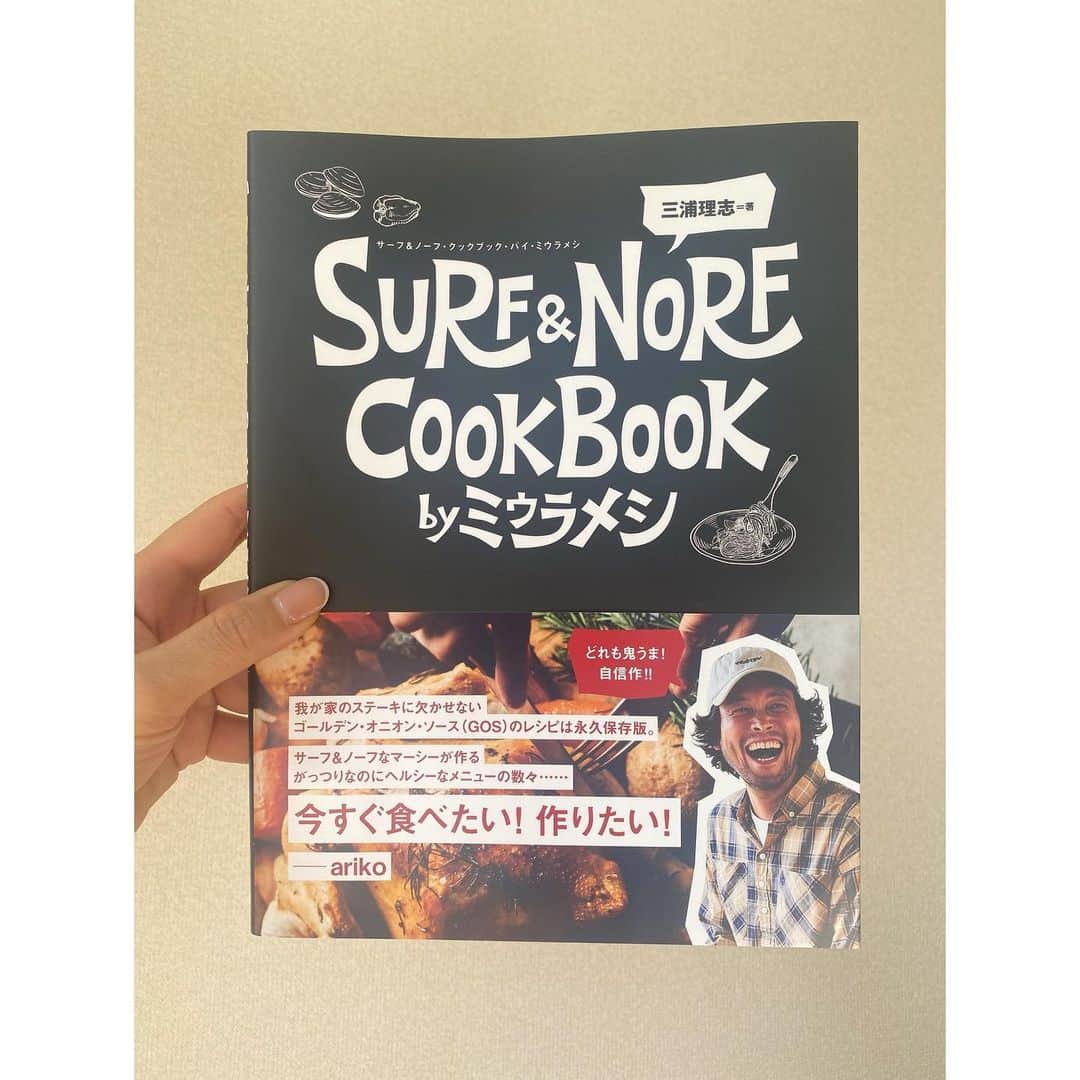 三浦理志=著
サーフ&ノーフ・クックブック・バイ・ミウラメシ
SURF & NORF
COOKBOOK
byミゥラメシ
どれも鬼うま!
自信作!!
我が家のステーキに欠かせない
ゴールデン・オニオン・ソース(GOS)のレシピは永久保存版。
サーフ&ノーフなマーシーが作る
がっつりなのにヘルシーなメニューの数々……
今すぐ食べたい! 作りたい!
── ariko